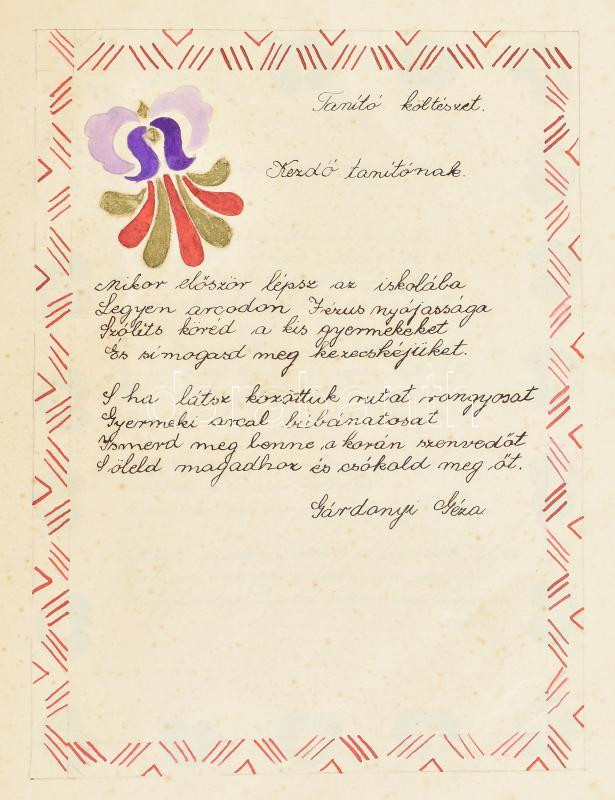 Tanító költészet.
Kezdő tanítónak.
Mikor először lépsz az iskolába
Legyen arcodon Jézus nyájassága
Szólíts köréd a kis gyermekeket
És simogasd meg kezecskéjüket.
S ha látsz közöttük rutat rongyosat
Gyermeki arcal búbánatosat
Ismerd meg benne a korán szenvedőt
S öleld magadhoz és csókold meg őt.
Gárdonyi Géza
darabanth